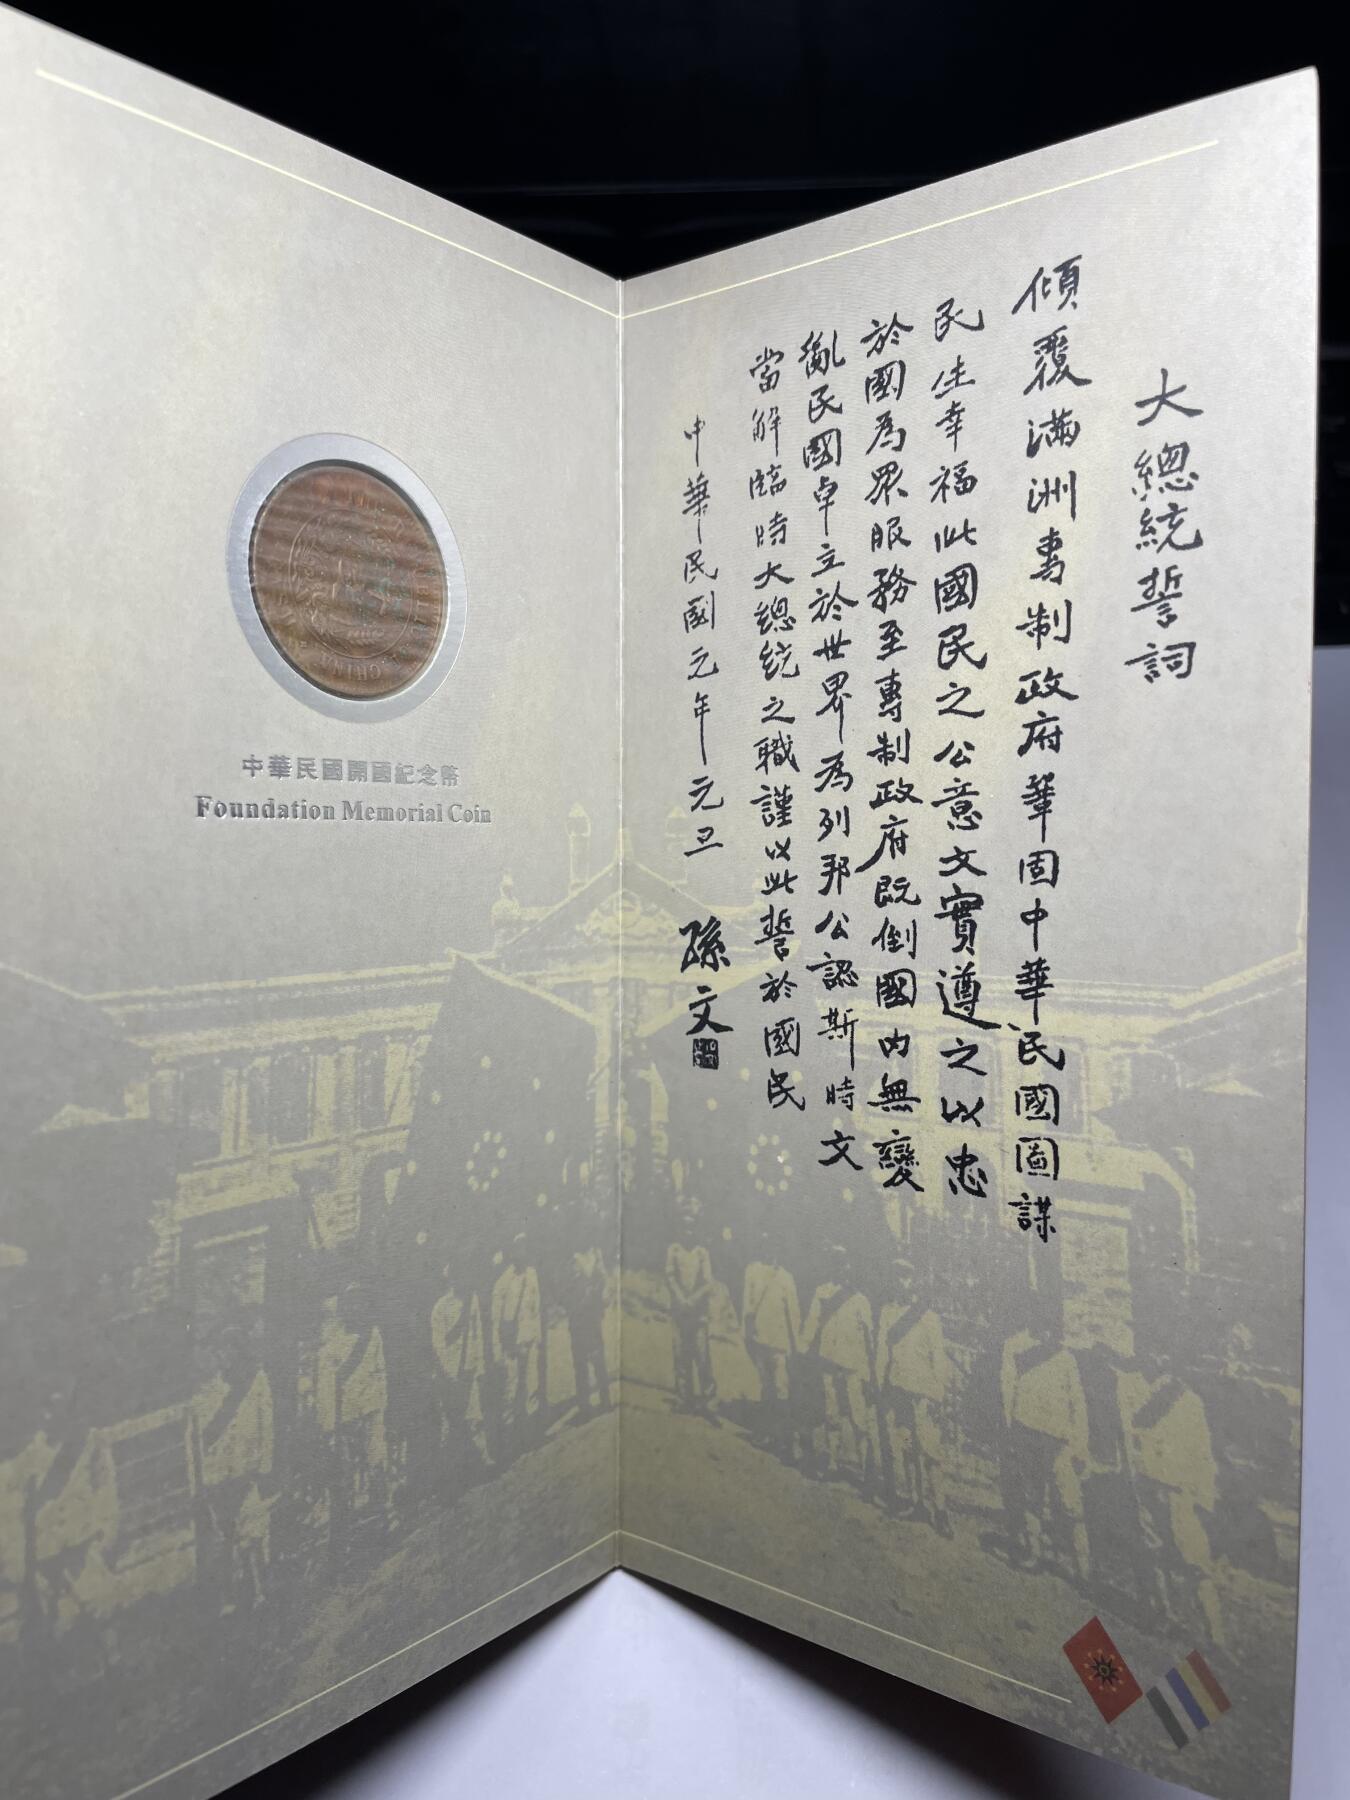 CHINA
中華民國開國紀念幣
Foundation Memorial Coin
大總統誓詞
傾覆滿洲專制政府鞏固中華民國圖謀
民生幸福此國民之公意文實遵之以忠
於國為眾服務至專制政府既倒國內無變
亂民國卓立於世界為列邦公認斯時文
當解臨時大總統之職謹以此誓於國民
中華民國元年元旦
孫文